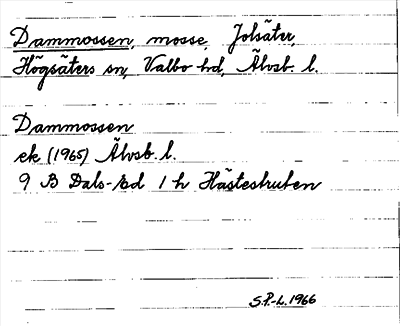 Dammossen, mosse, Jolsäter,
Högsäters sn, Valbo hd, Älvsb. l.
Dammossen
ek (1965) Älvsb. l.
9 B Dals-Ed 1 h Hästestruten
S.P-L. 1966